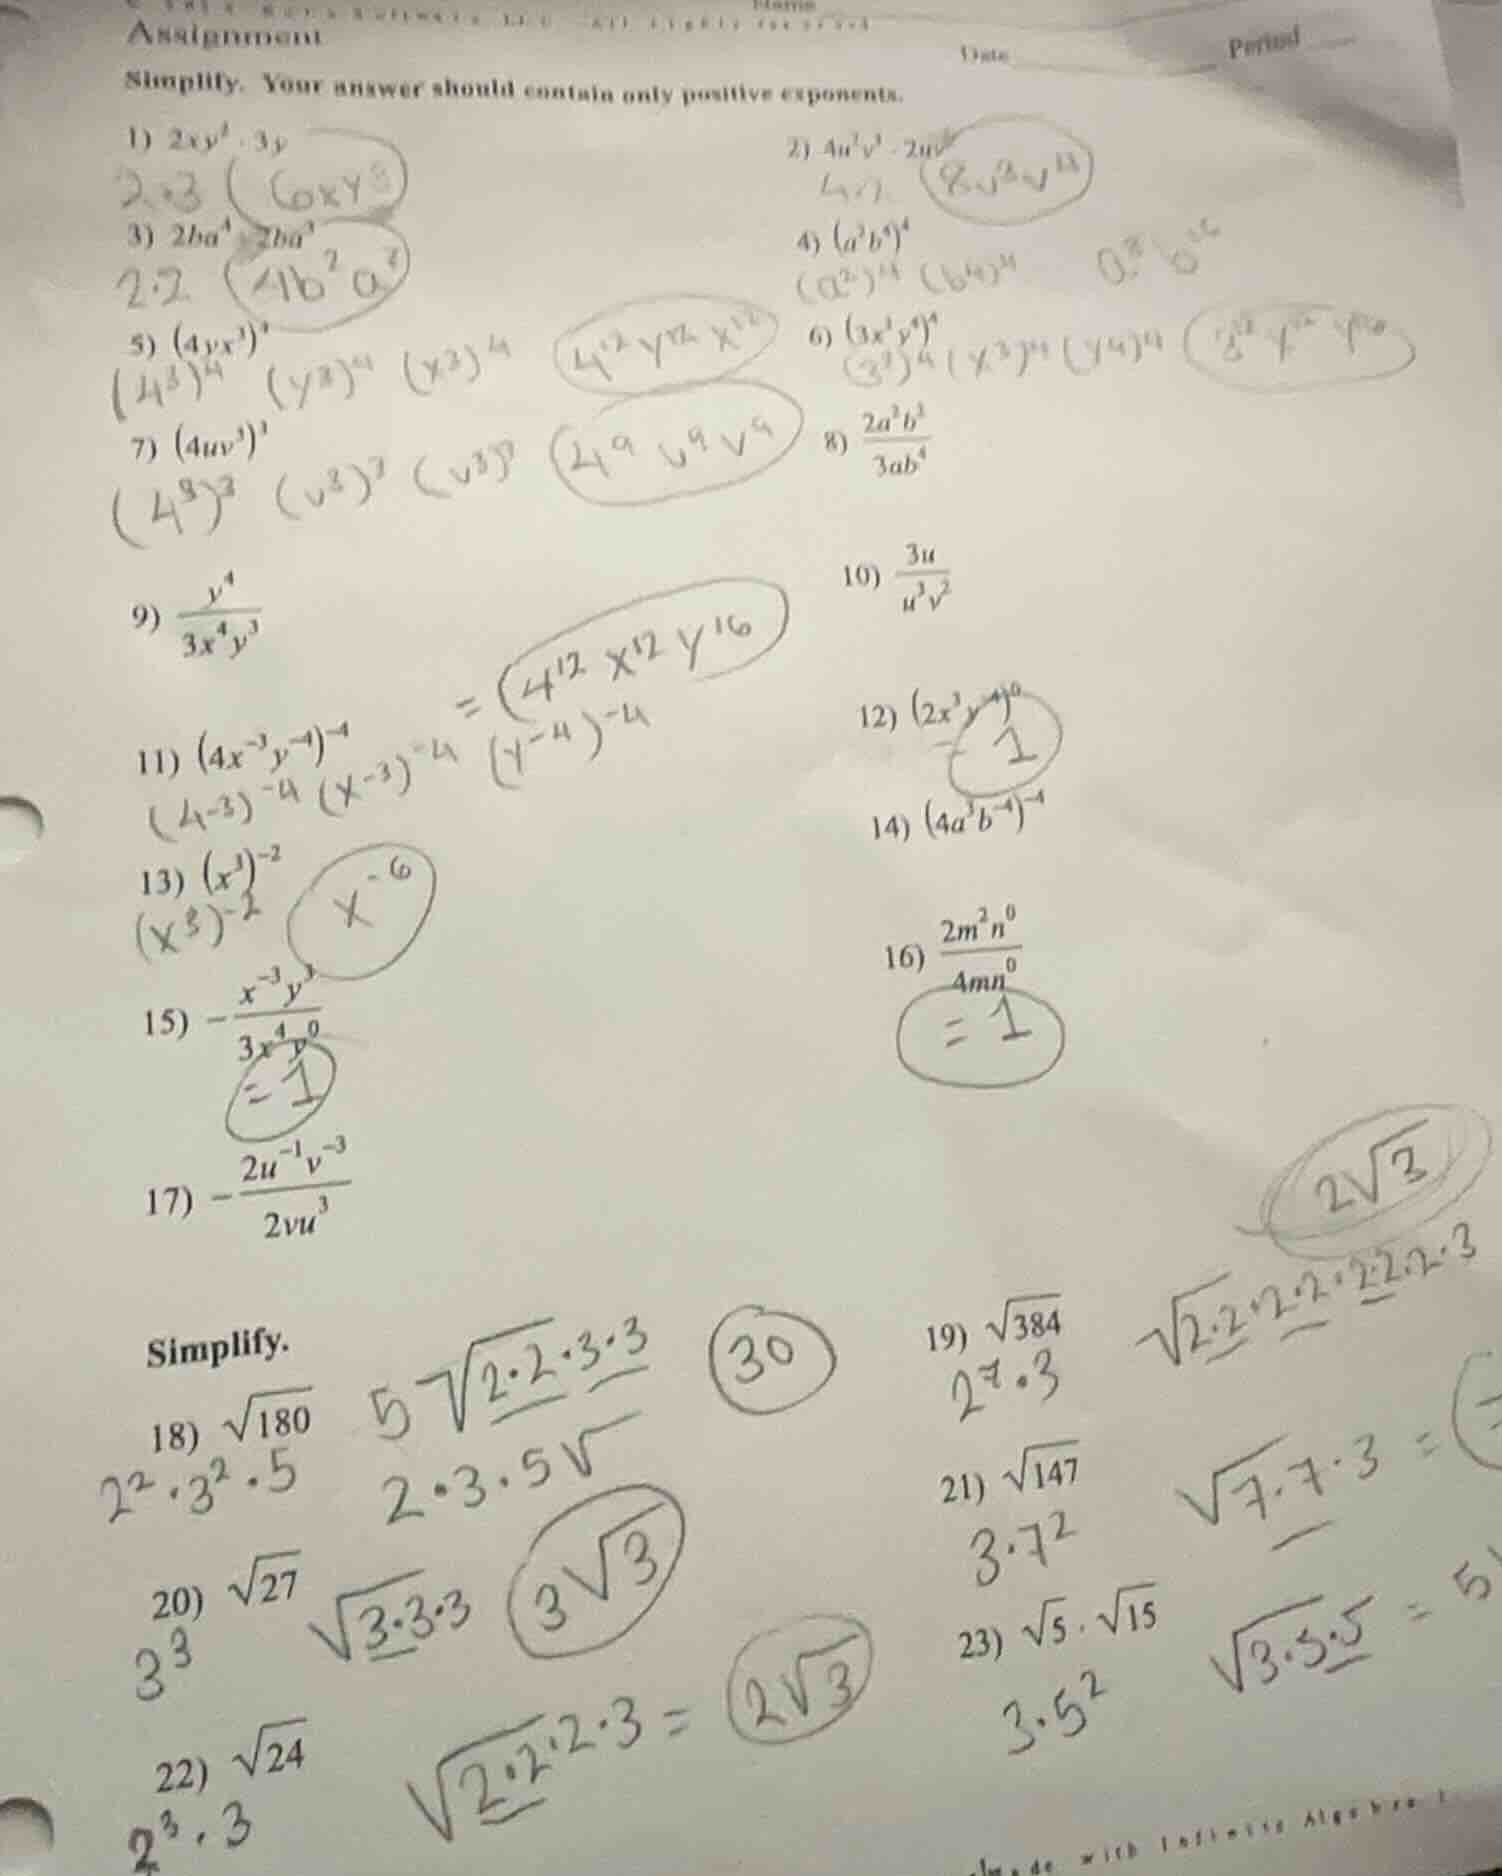 Name
Assignment
Date Period
Simplify. Your answer should contain only positive exponents.
1) 2xy² · 3y
2·3
2)
8u³v⁴
3) 2ba⁴ · 2ba³
2·2 4b²a
4)
(a²)⁴ (b⁴)⁴ a⁸ b¹⁶
5) (4yx³)
(4³)⁴ (y³)⁴ (x³)⁴ 4¹² y¹² x¹²
6)
(x³)⁴ (y⁴)⁴
7) (4uv³)³
(4³)³ (v³)³ (v³)³ 4⁹ v⁹ v⁹
8) 2a²b³ / 3ab⁴
9) y⁴ / 3x⁴y³
10) 3u / u³v²
= 4¹² x¹² y¹⁶
11) (4x⁻³y⁻⁴)⁻⁴
(4⁻³)⁻⁴ (x⁻³)⁻⁴ (y⁻⁴)⁻⁴
12) (2x³y⁻⁴)⁰
= 1
13) (x³)⁻²
(x³)⁻² x⁻⁶
14) (4a³b⁻⁴)⁻⁴
15) − x⁻³y³ / 3x⁴y⁰
= 1
16) 2m²n⁰ / 4mn⁰
= 1
17) − 2u⁻¹v⁻³ / 2vu³
Simplify.
18) √180 5√2·2·3·3 30
2²·3²·5 2·3·5√
19) √384 √2·2·2·2·2·2·2·3 2√3
2⁷·3
20) √27 √3·3·3 3√3
3³
21) √147 √7·7·3 =
3·7²
22) √24 √2·2·2·3 = 2√3
2³·3
23) √5 · √15 √3·5·5 = 5
3·5²
with Infinite Algebra 1